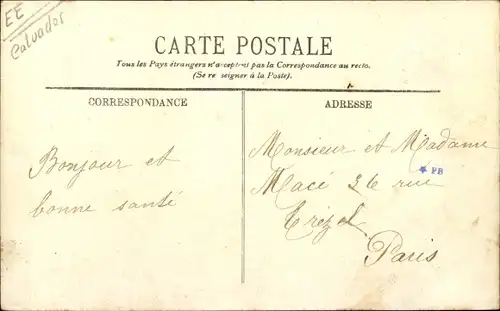 EE
Calvados
CARTE POSTALE
Tous les Pays étrangers n'acceptent pas la Correspondance au recto.
(Se renseigner à la Poste).
CORRESPONDANCE
ADRESSE
Bonjour et
bonne santé
Monsieur et Madame
Macé 36 rue
* PB
Trézel
Paris